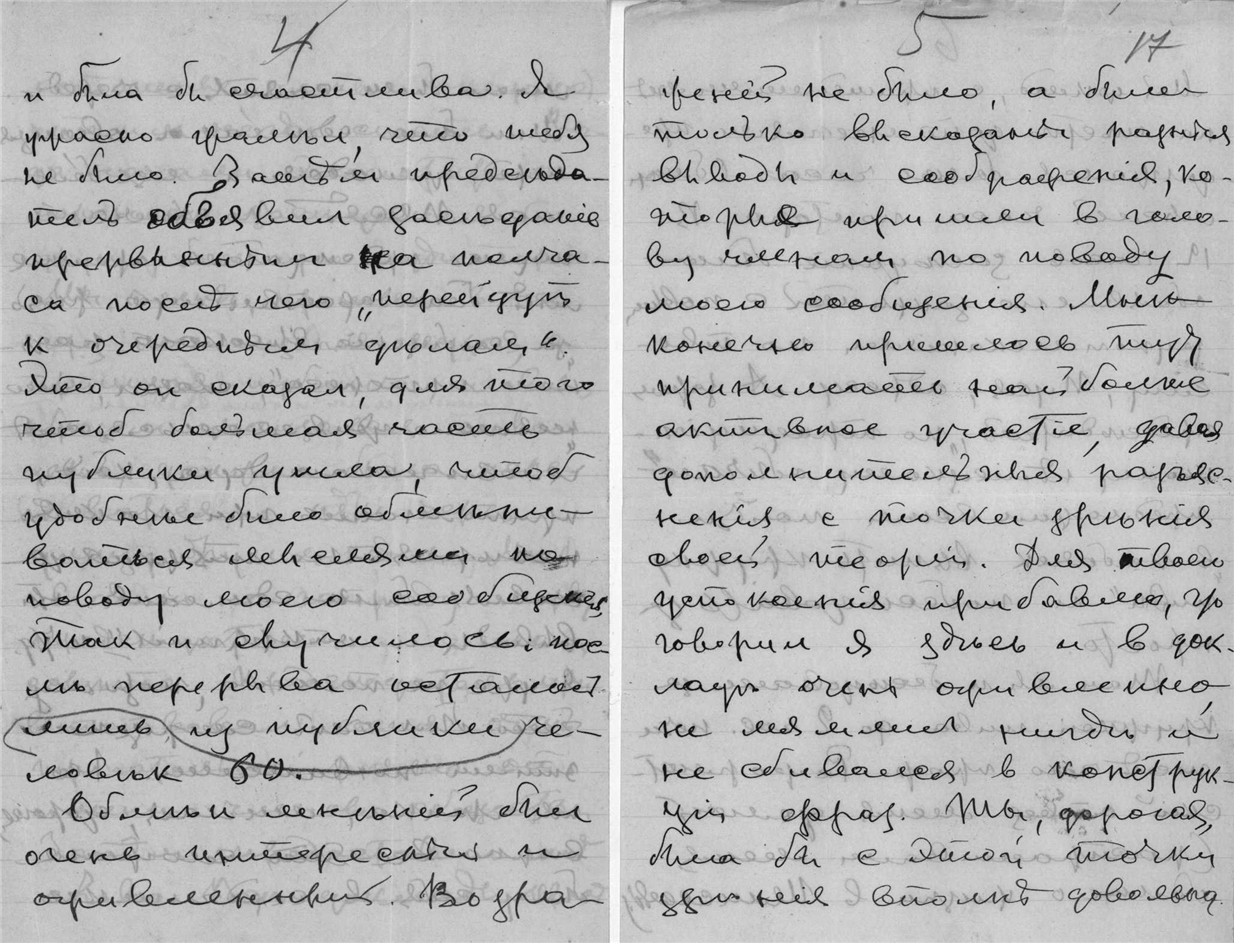 4
и была бы счастлива. Я
ужасно жалѣл, что тебя
не было. Затѣм предсѣда-
тель объявил засѣданіе
прерванным на полча-
са послѣ чего „перейдут
к очередным дѣлам“.
Это он сказал, для того
чтоб большая часть
публики ушла, чтоб
удобнѣе было обмѣни-
ваться мнѣніями по
поводу моего сообщенія
Так и случилось: пос-
лѣ перерыва осталось
лишь из публики че-
ловѣк 60.
Обмѣн мнѣній был
очень интересный и
оживленный. Возра-
5
17
женій не было, а были
только высказаны разныя
выводы и соображенія, ко-
торыя пришли в голо-
ву членам по поводу
моего сообщенія. Мнѣ
конечно пришлось тут
принимать наиболѣе
активное участіе, давая
дополнительныя разъяс-
ненія с точки зрѣнія
своей теоріи. Для твоего
успокоенія прибавлю, что
говорил я здѣсь и в док-
ладѣ очень оживленно,
не мямлил нигдѣ и
не сбивался в конструк-
ціи фраз. Ты, дорогая,
была бы с этой точки
зрѣнія вполнѣ довольна.